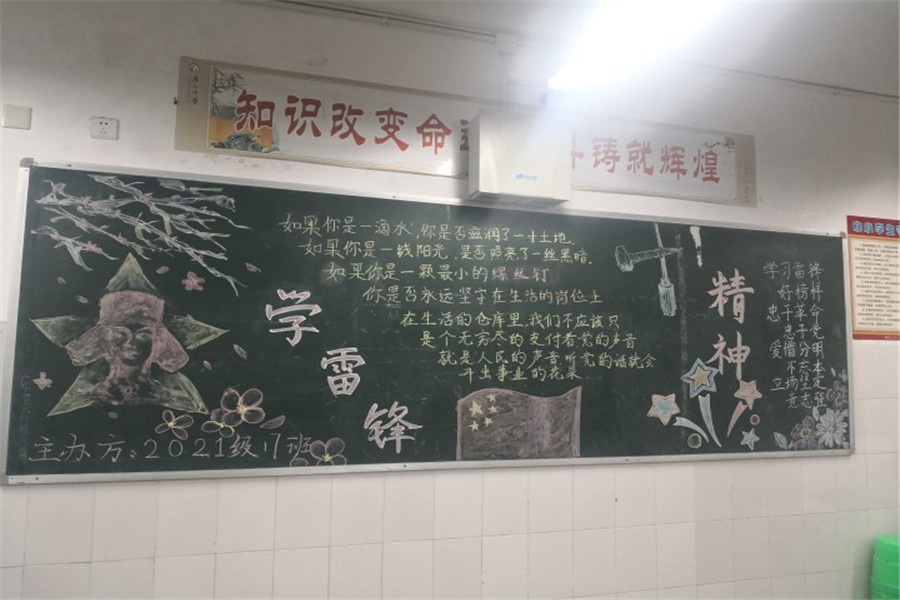 知识改变命
铸就辉煌
如果你是一滴水,你是否滋润了一寸土地.
如果你是一线阳光,是否照亮了一丝黑暗.
如果你是一颗最小的螺丝钉
你是否永远坚守在生活的岗位上
在生活的仓库里,我们不应该只
是个无穷尽的支付者党的声音
就是人民的声音听党的话就会
开出事业的花朵
学
雷
锋
精
神
学习雷锋
好榜样
忠于革命
忠于党
爱憎分明
不忘本
立场坚定
主办方:2021级17班